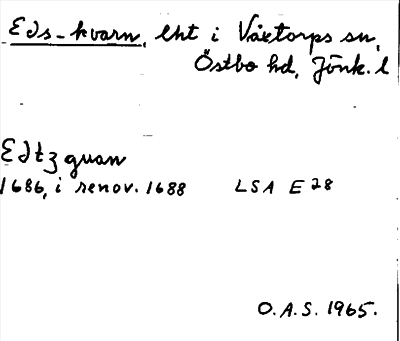 Eds-kvarn, lht i Våxtorps sn,
Östbo hd, Jönk. l
Edtzquan
1686, i renov. 1688 LSA E 28
O.A.S. 1965.